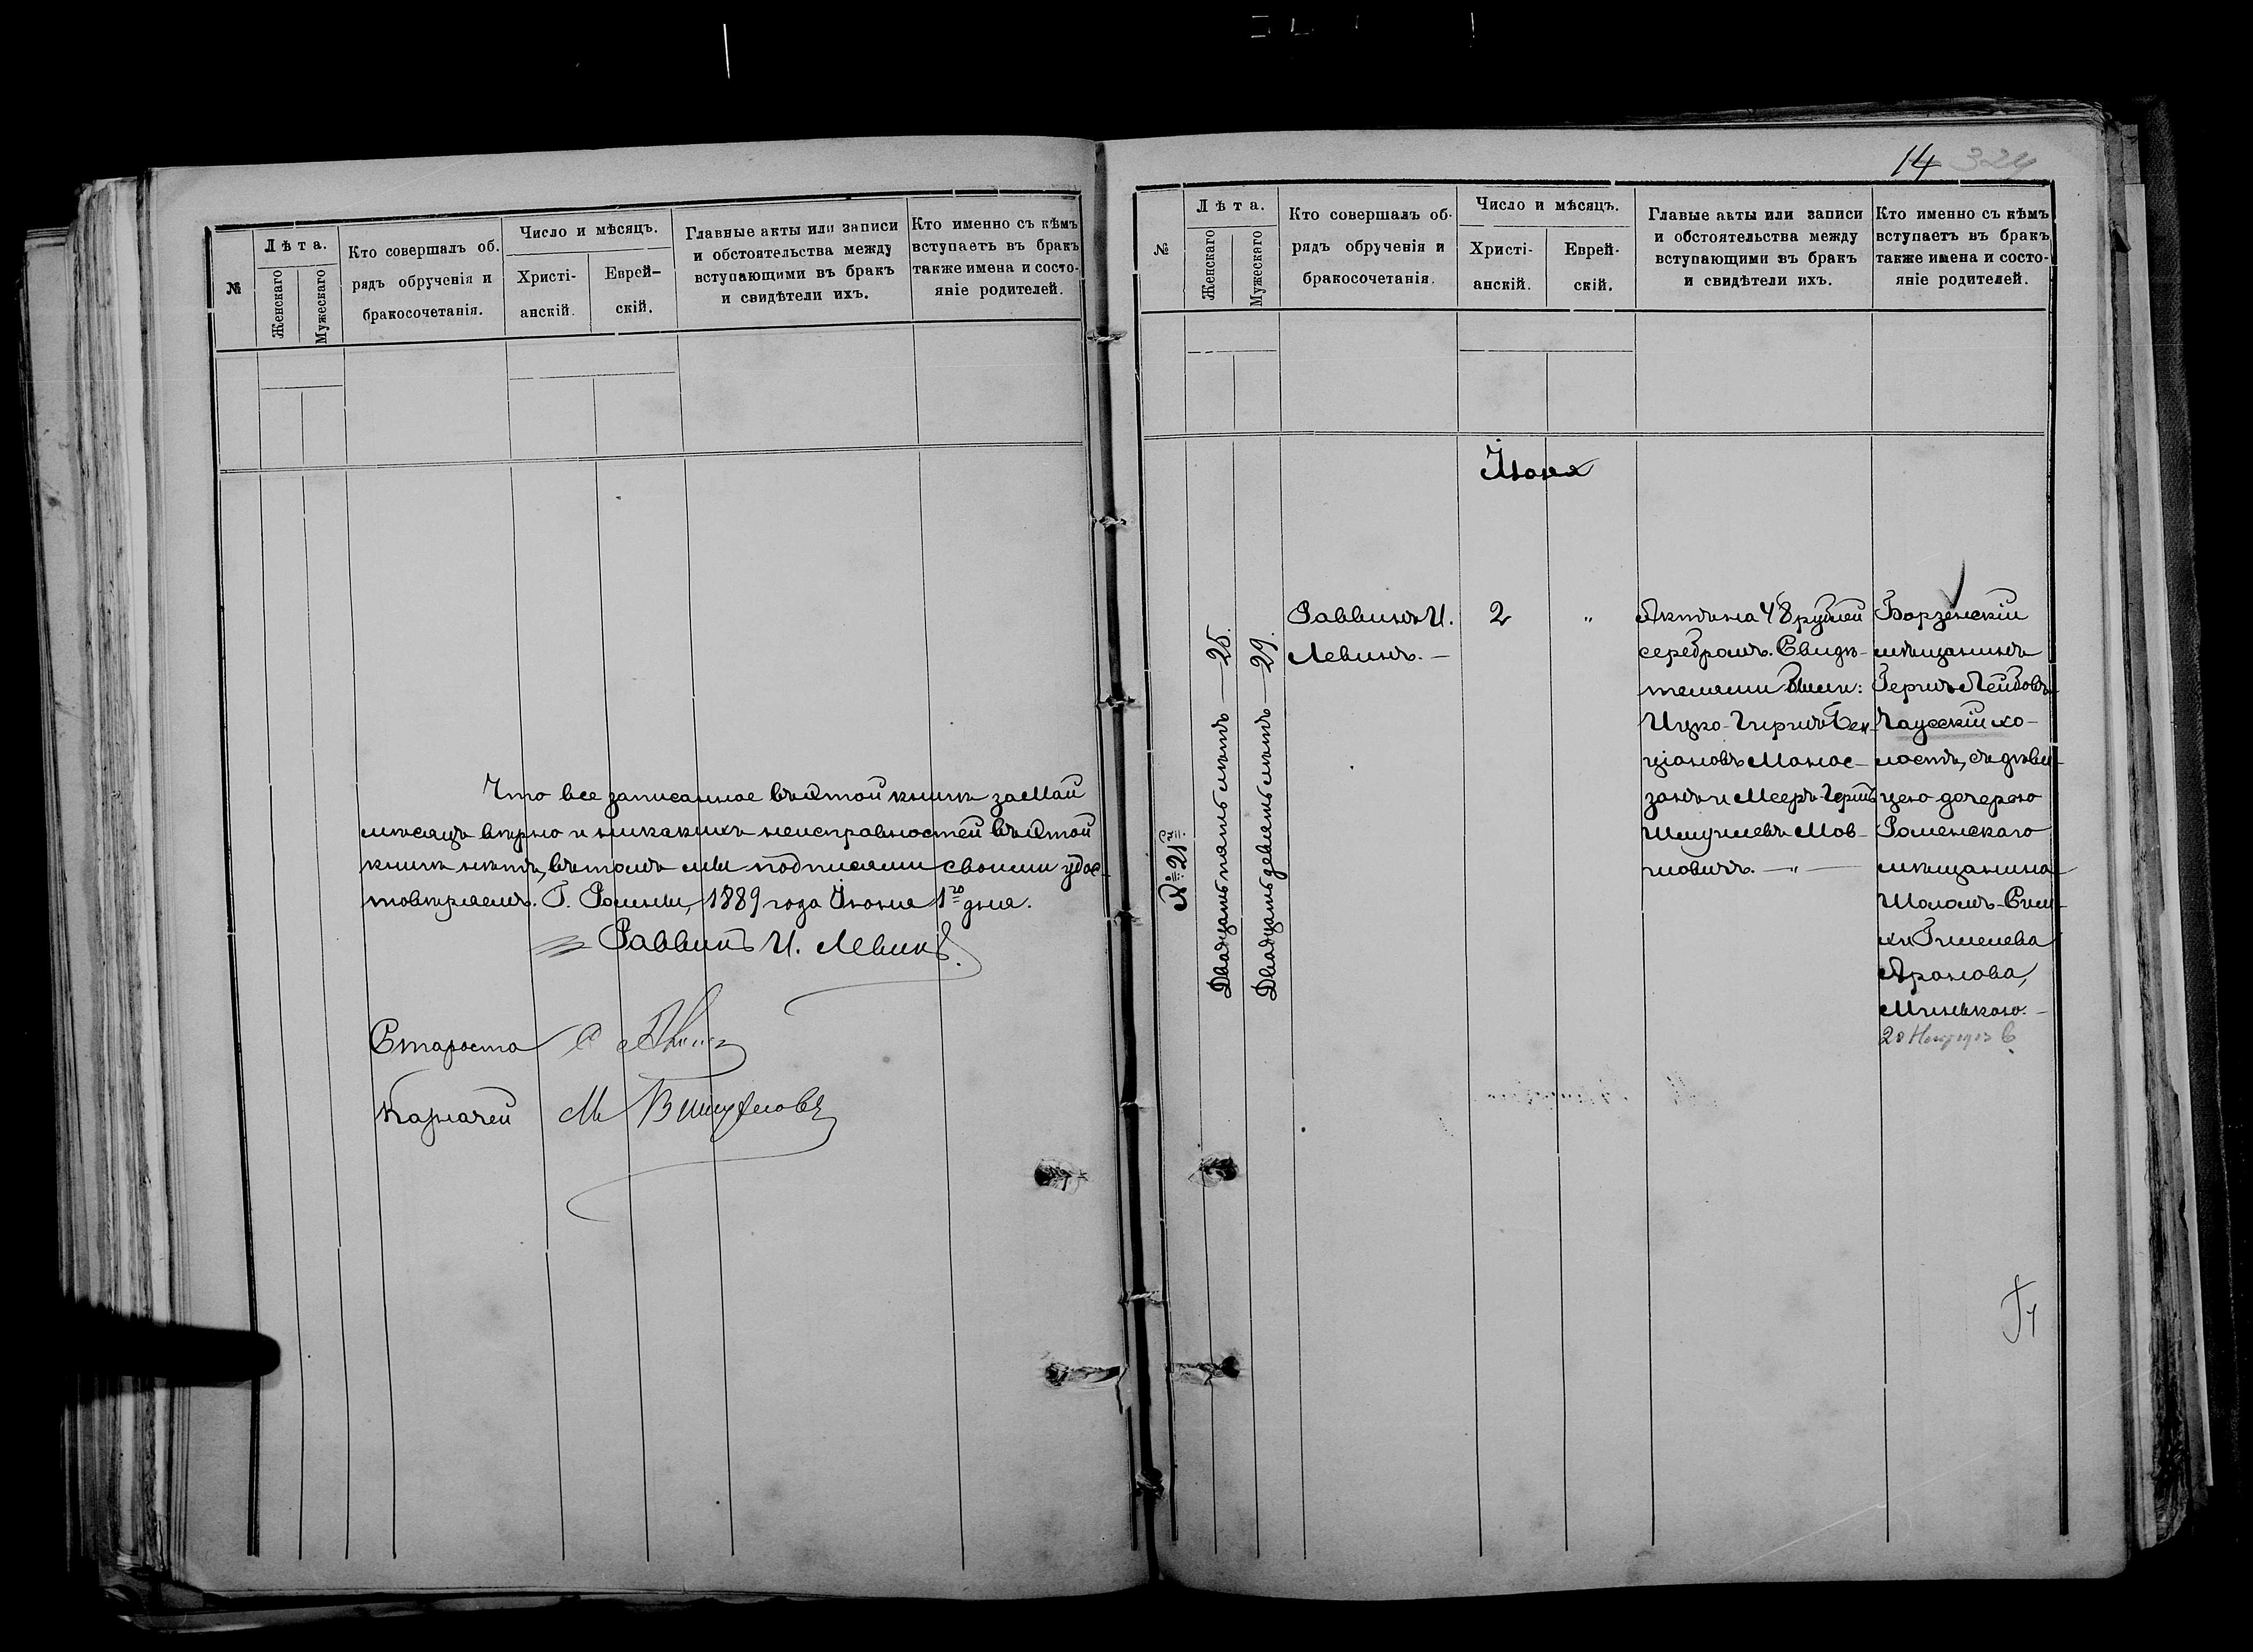 №
Лѣта.
Женскаго
Мужескаго
Кто совершалъ об.
рядъ обрученія и
бракосочетанія.
Число и мѣсяцъ.
Христі-
анскій.
Еврей-
скій.
Главные акты или записи
и обстоятельства между
вступающими въ бракъ
и свидѣтели ихъ.
Кто именно съ кѣмъ
вступаетъ въ бракъ
также имена и состо-
яніе родителей.
Что все записанное въ этой книгѣ за Май
мѣсяцъ вѣрно и никакихъ неисправностей въ этой
книгѣ нѣтъ, въ томъ мы подписями своими удос-
товѣряемъ. Г. Ромны, 1889 года Іюня 1го дня.
Раввинъ И. Левинъ.
Староста
Казначей М
14 324
№
Лѣта.
Женскаго
Мужескаго
Кто совершалъ об-
рядъ обрученія и
бракосочетанія.
Число и мѣсяцъ.
Христі-
анскій.
Еврей-
скій.
Главые акты или записи
и обстоятельства между
вступающими въ бракъ
и свидѣтели ихъ.
Кто именно съ кѣмъ
вступаетъ въ бракъ
также имена и состо-
яніе родителей.
Іюня
№ 21й
Двадцать пять лѣтъ — 25.
Двадцать девять лѣтъ — 29.
Раввинъ И.
Левинъ. —
2
"
Актъ на 48 рублей
серебромъ. Свидѣ-
телями были:
Ицко-Гиршъ Бен-
ціоновъ Монос-
зонъ и Мееръ-Гершъ
Шмуилевъ Мов-
шовичъ. — " —
Борзенскій
мѣщанинъ
Гершъ Лейбовъ
Чаусскій хо-
лостъ, съ дѣви-
цею дочерью
Роменскаго
мѣщанина
Шоломъ-Сим-
хи Гишелева
Аронова,
Минькою. —